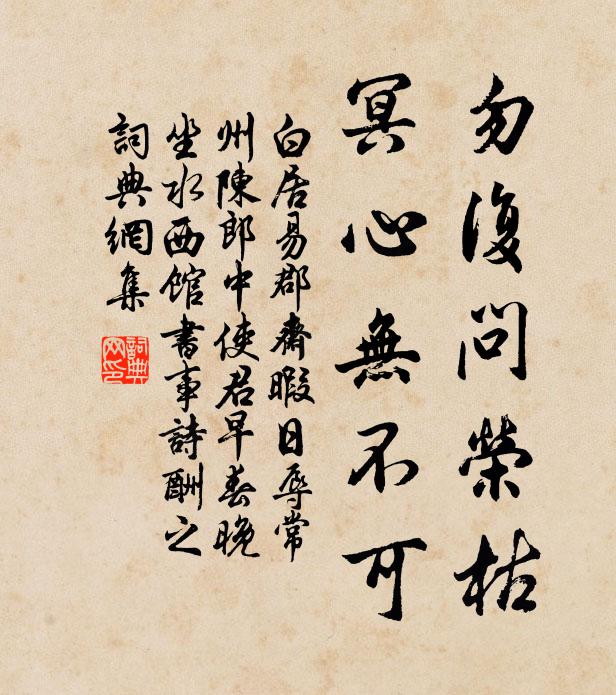 勿復問榮枯
冥心無不可
白居易郡齋暇日辱常
州陳郎中使君早春晚
坐水西館書事詩酬之
詞典網集
詞典
网印